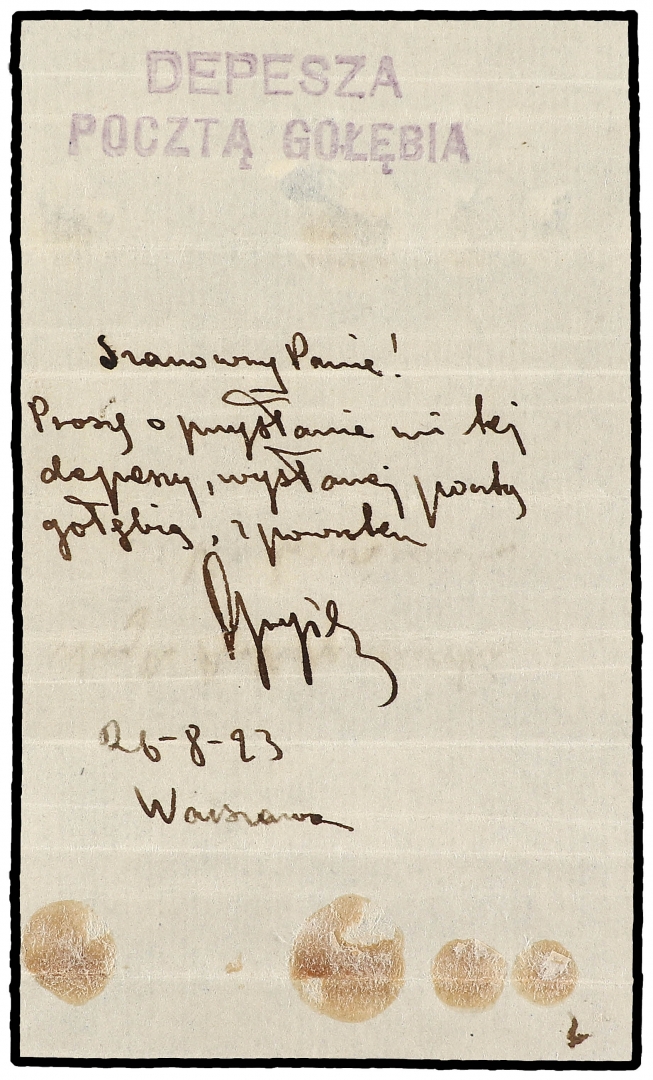 DEPESZA
POCZTĄ GOŁĘBIĄ
Szanowny Panie!
Proszę o przysłanie mi tej
depeszy, wysłanej pocztą
gołębią, z powrotem
26-8-23
Warszawa